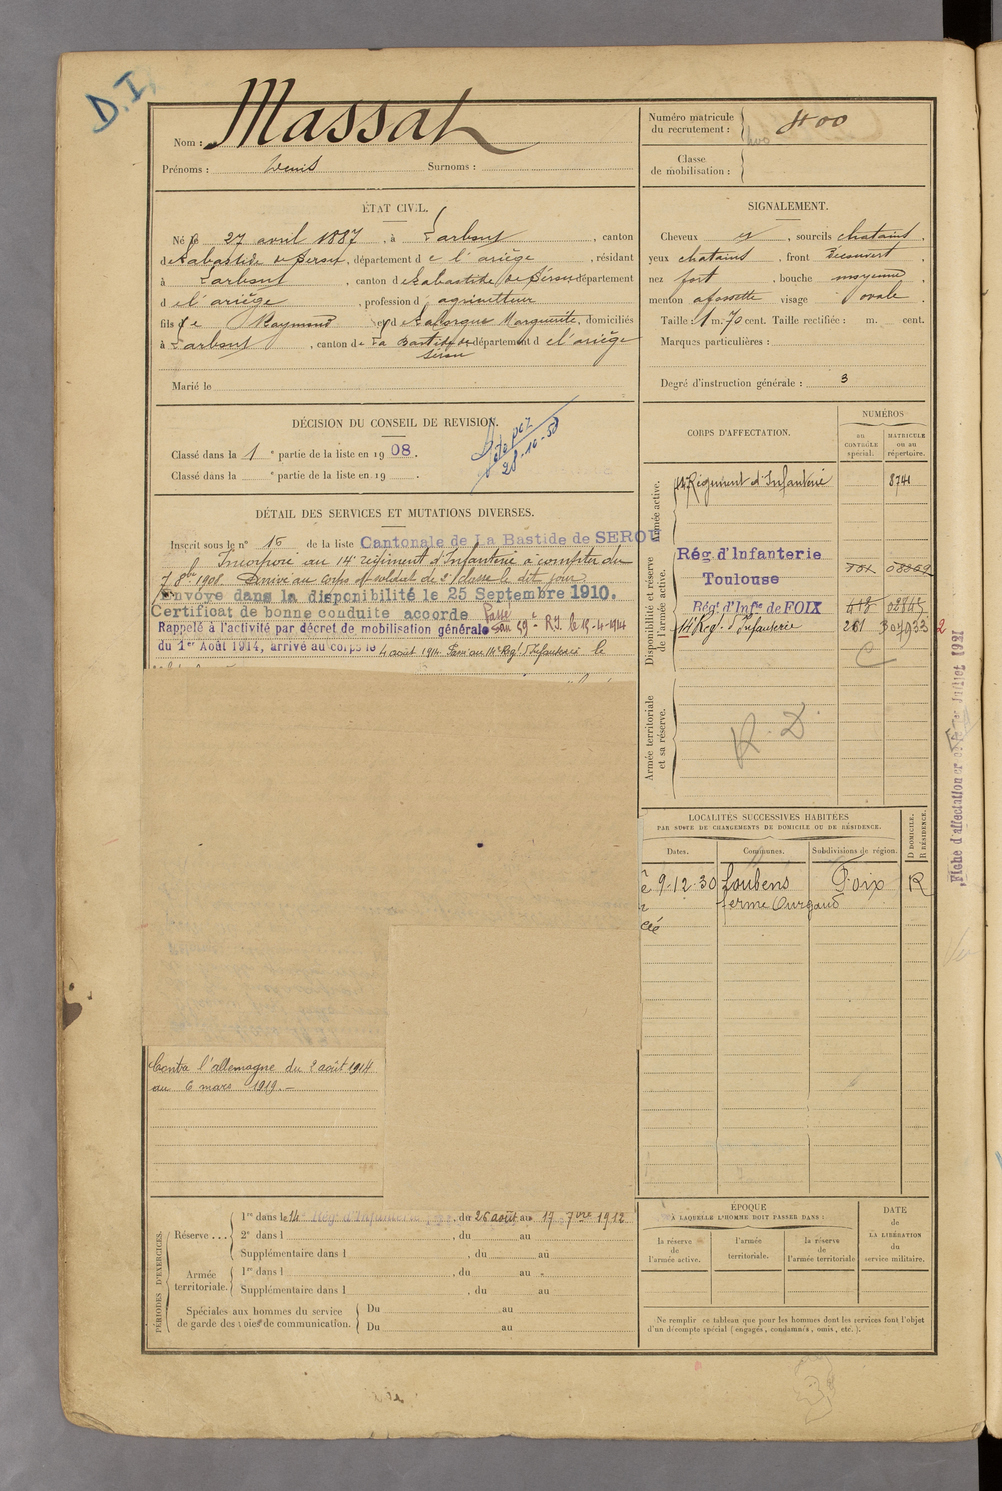 D.I.
Nom : Massat
Prénoms : Denis Surnoms :
Numéro matricule
du recrutement : 400
Classe
de mobilisation :
ÉTAT CIVIL.
Né le 27 avril 1887, à Larbont, canton
de Labastide de Serou, département de l'ariège, résidant
à Larbont, canton de Labastide de Sérou département
de l'ariège, profession d'agriculteur
fils de Raymond et de Marguerite, domiciliés
à Larbont, canton de La Bastide de Sérou département de l'ariège
Marié le
SIGNALEMENT.
Cheveux et, sourcils chatains,
yeux chatains, front découvert,
nez fort, bouche moyenne,
menton a fossette visage ovale.
Taille : 1 m. 70 cent. Taille rectifiée : m. cent.
Marques particulières :
Degré d'instruction générale : 3
DÉCISION DU CONSEIL DE REVISION.
Classé dans la 1e partie de la liste en 1908.
Classé dans la e partie de la liste en 19 .
28-10-58
DÉTAIL DES SERVICES ET MUTATIONS DIVERSES.
Inscrit sous le n° 16 de la liste Cantonale de La Bastide de SEROU
Incorporé au 14e régiment d'Infanterie à compter du
7 8bre 1908. Arrivé au corps et soldat de 2e classe le dit jour
Envoyé dans la disponibilité le 25 Septembre 1910.
Certificat de bonne conduite accordé Passé
Rappelé à l'activité par décret de mobilisation générale au 59e R.I. le 15-4-1914
du 1er Août 1914, arrivé au corps le 4 août 1914. Passé au 14e Regt d'Infanterie le
Contre l'allemagne du 2 août 1914
au 6 mars 1919.-
CORPS D'AFFECTATION.
NUMÉROS
au
CONTRÔLE
spécial.
MATRICULE
ou au
répertoire.
Armée active.
14e Régiment d'Infanterie 8741
Disponibilité et réserve
de l'armée active.
Rég. d'Infanterie
Toulouse
Rég. d'Infie de FOIX
14e Reg. d'Infanterie 261
C
Armée territoriale
et sa réserve.
R.D.
Fiche d'affectation
Juillet 1921
LOCALITÉS SUCCESSIVES HABITÉES
PAR SUITE DE CHANGEMENTS DE DOMICILE OU DE RÉSIDENCE.
Dates. Communes. Subdivisions de région. D DOMICILE. R RÉSIDENCE.
9-12-30 Loubens Foix R
ferme Durgaud
PÉRIODES D'EXERCICES.
Réserve ...
1re dans le 14e Rég. d'Infanterie, du 26 août au 17 7bre 1912
2e dans l , du au
Supplémentaire dans l , du au
Armée
territoriale.
1re dans l , du au
Supplémentaire dans l , du au
Spéciales aux hommes du service
de garde des voies de communication.
Du au
Du au
EPOQUE
À LAQUELLE L'HOMME DOIT PASSER DANS :
la réserve
de
l'armée active.
l'armée
territoriale.
la réserve
de
l'armée territoriale
DATE
de
LA LIBÉRATION
du
service militaire.
Ne remplir ce tableau que pour les hommes dont les services font l'objet
d'un décompte spécial (engagés, condamnés, omis, etc.).